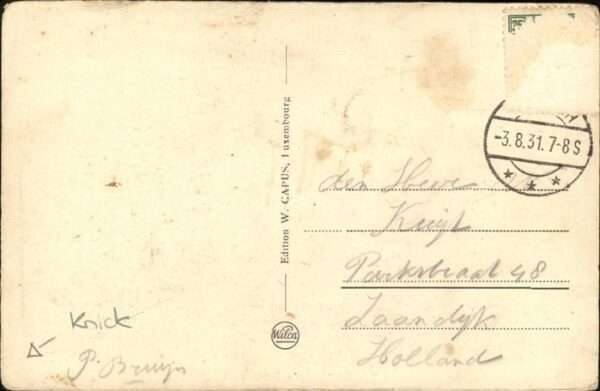 Edition W. CAPUS, Luxembourg
Wilca
-3.8.31.7-8 S
den Heer
Kuijt
Parkstraat 48
Zaandijk
Holland
Knick
P. Bruijn